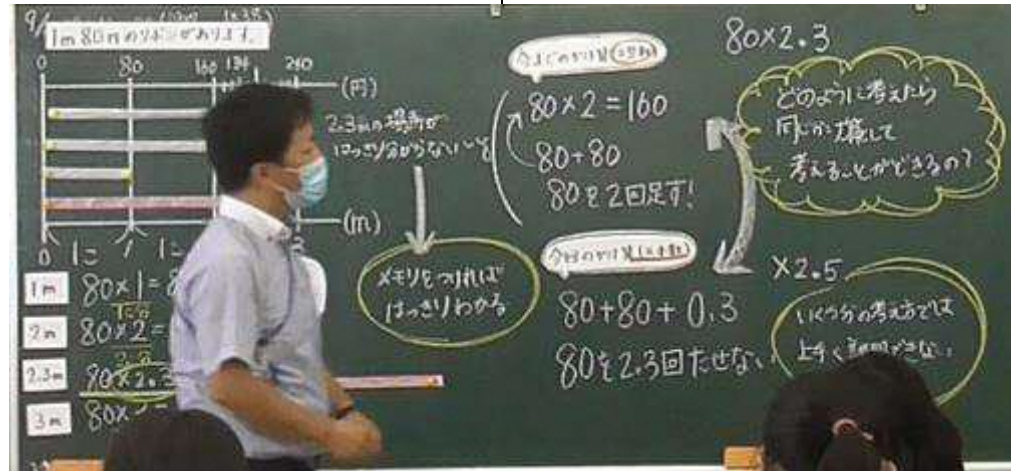 9/
1m 80円のリボンがあります。
0 80 160 184 240
(円)
(m)
0 1 3
1m 80×1=8
2m 80×2=
2.3m 80×2.3
3m 80×
2.3mの場所が
はっきり分からない
メモリをつければ
はっきりわかる
今までのかけ算(×整数)
80×2=160
80+80
80を2回足す!
今日のかけ算(×小数)
80+80+0.3
80を2.3回たせない
80×2.3
どのように考えたら
同じかけ算として
考えることができるの?
×2.5
いくつ分の考え方では
上手く説明できない